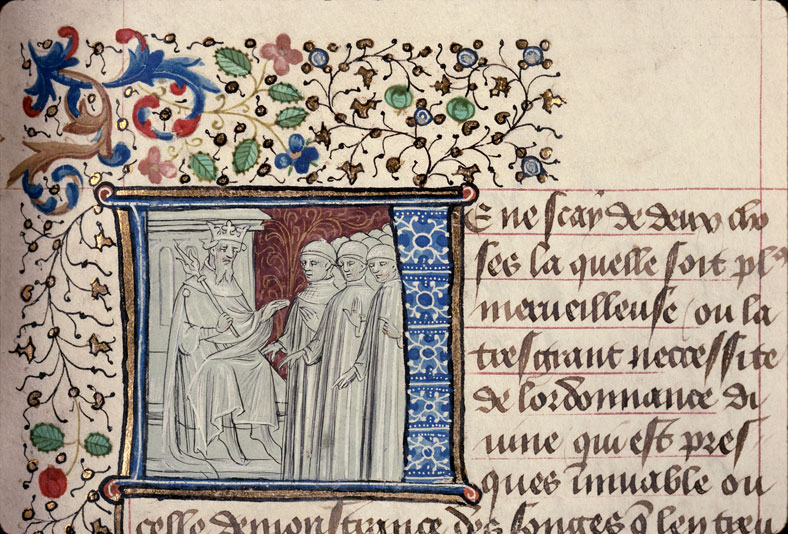 E ne scay de deux cho
ses la quelle soit plꝰ
merueilleuse / ou la
tresgrant neccessite
de lordonnance di
uine qui est pres
ques inuiable ou
celle demonstrance des songes q̄ len treu